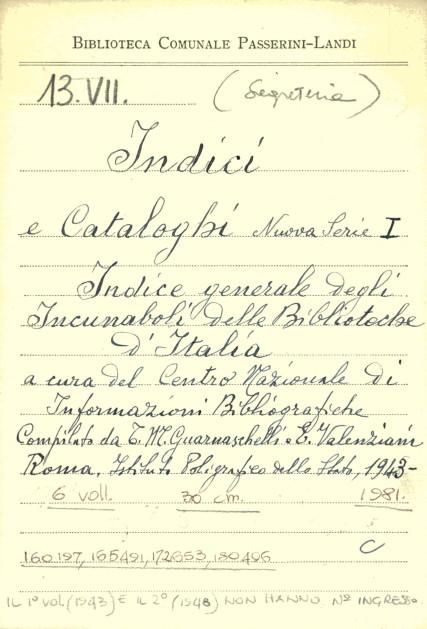 BIBLIOTECA COMUNALE PASSERINI-LANDI
13.VII. (Segreteria)
Indici
e Cataloghi Nuova Serie I
Indice generale degli
Incunaboli delle Biblioteche
d'Italia
a cura del Centro Nazionale di
Informazioni Bibliografiche
Compilato da T. M. Guarnaschelli e E. Valenziani
Roma. Istituto Poligrafico dello Stato, 1943-
6 voll. 30 cm. 1981.
C
160197, 165491, 172653, 180496
IL 1º VOL. (1943) E IL 2º (1948) NON HANNO Nº INGRESSO